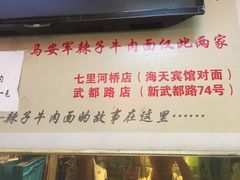 马安军辣子牛肉面仅此两家
七里河桥店（海天宾馆对面）
武都路店（新武都路74号）
辣子牛肉面的故事在这里······